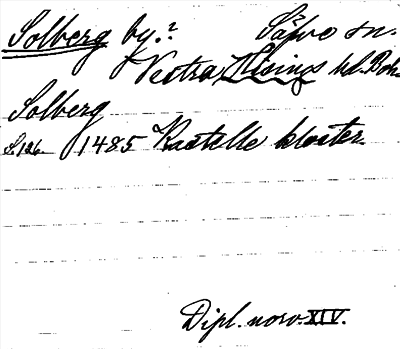 Solberg by.? Säve sn.
Vestra Hisings hd. Boh.
Solberg
S. 126. 1485 Kastelle kloster.
Dipl. norv. XIV.